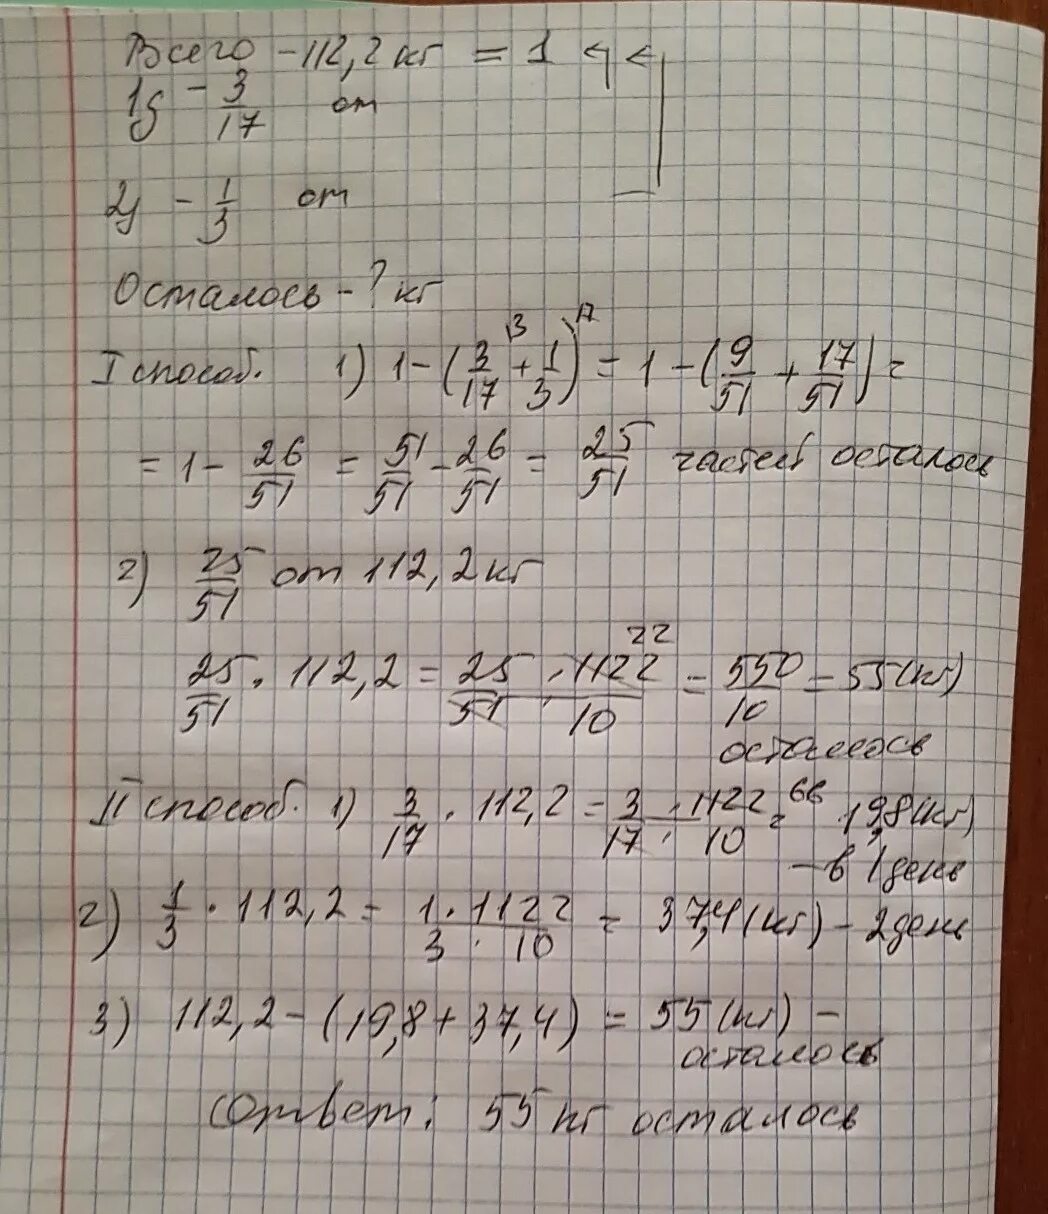 Всего - 112,2 кг = 1
1д - 3/17 от
2д - 1/3 от
Осталось - ? кг
I способ. 1) 1 - (3/17 + 1/3) = 1 - (9/51 + 17/51) =
= 1 - 26/51 = 51/51 - 26/51 = 25/51 частей осталось
2) 25/51 от 112,2 кг
22
25/51 · 112,2 = 25 · 1122 / 51 · 10 = 550/10 = 55 (кг)
осталось
II способ. 1) 3/17 · 112,2 = 3 · 1122 / 17 · 10 = 66 19,8 (кг)
- в 1 день
2) 1/3 · 112,2 = 1 · 1122 / 3 · 10 = 37,4 (кг) - 2 день
3) 112,2 - (19,8 + 37,4) = 55 (кг) -
осталось
Ответ: 55 кг осталось